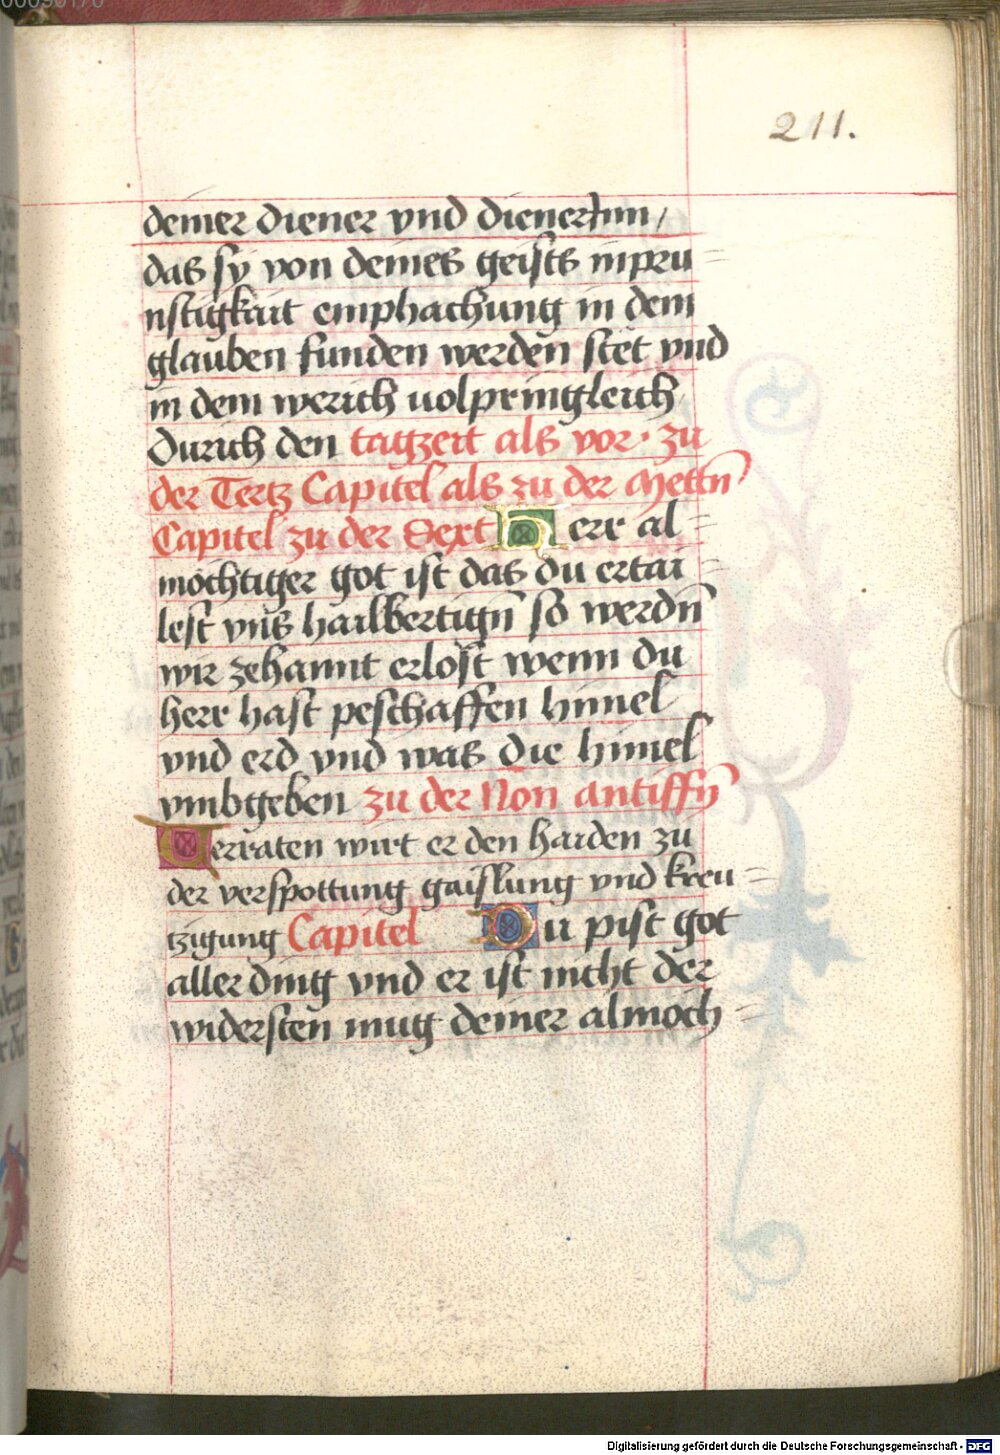 00090170
211.
deiner diener vnd dienerinn /
das sy von deines geists inpru=
nstigkait emphachung in dem
glauben funden werden stet vnd
in dem werich uolpringleich
Durich den tagzeit als vor. zu
der Tertz Capitel als zu der Mettn̄
Capitel zu der Sext Herr al=
möchtiger got ist das du ertai=
lest vn̄s hailbertign̄ so werdn̄
wir zehannt erlost wenn du
herr hast peschaffen himel
vnd erd vnd was die himel
vmbtgeben zu der Non antiffn̄
Verraten wirt er den haiden zu
der verspottung gaislung vnd kreu=
tzigung Capitel Du pist got
aller ding vnd er ist nicht der
widersten mug deiner almöch=
Digitalisierung gefördert durch die Deutsche Forschungsgemeinschaft - DFG